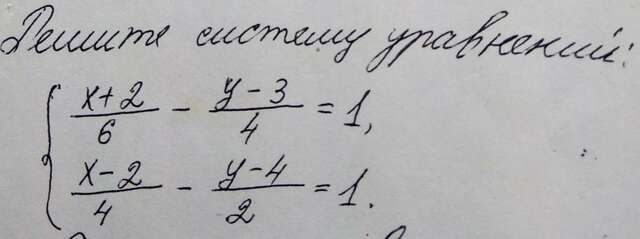 Решите систему уравнений:
x+2/6 - y-3/4 = 1,
x-2/4 - y-4/2 = 1.